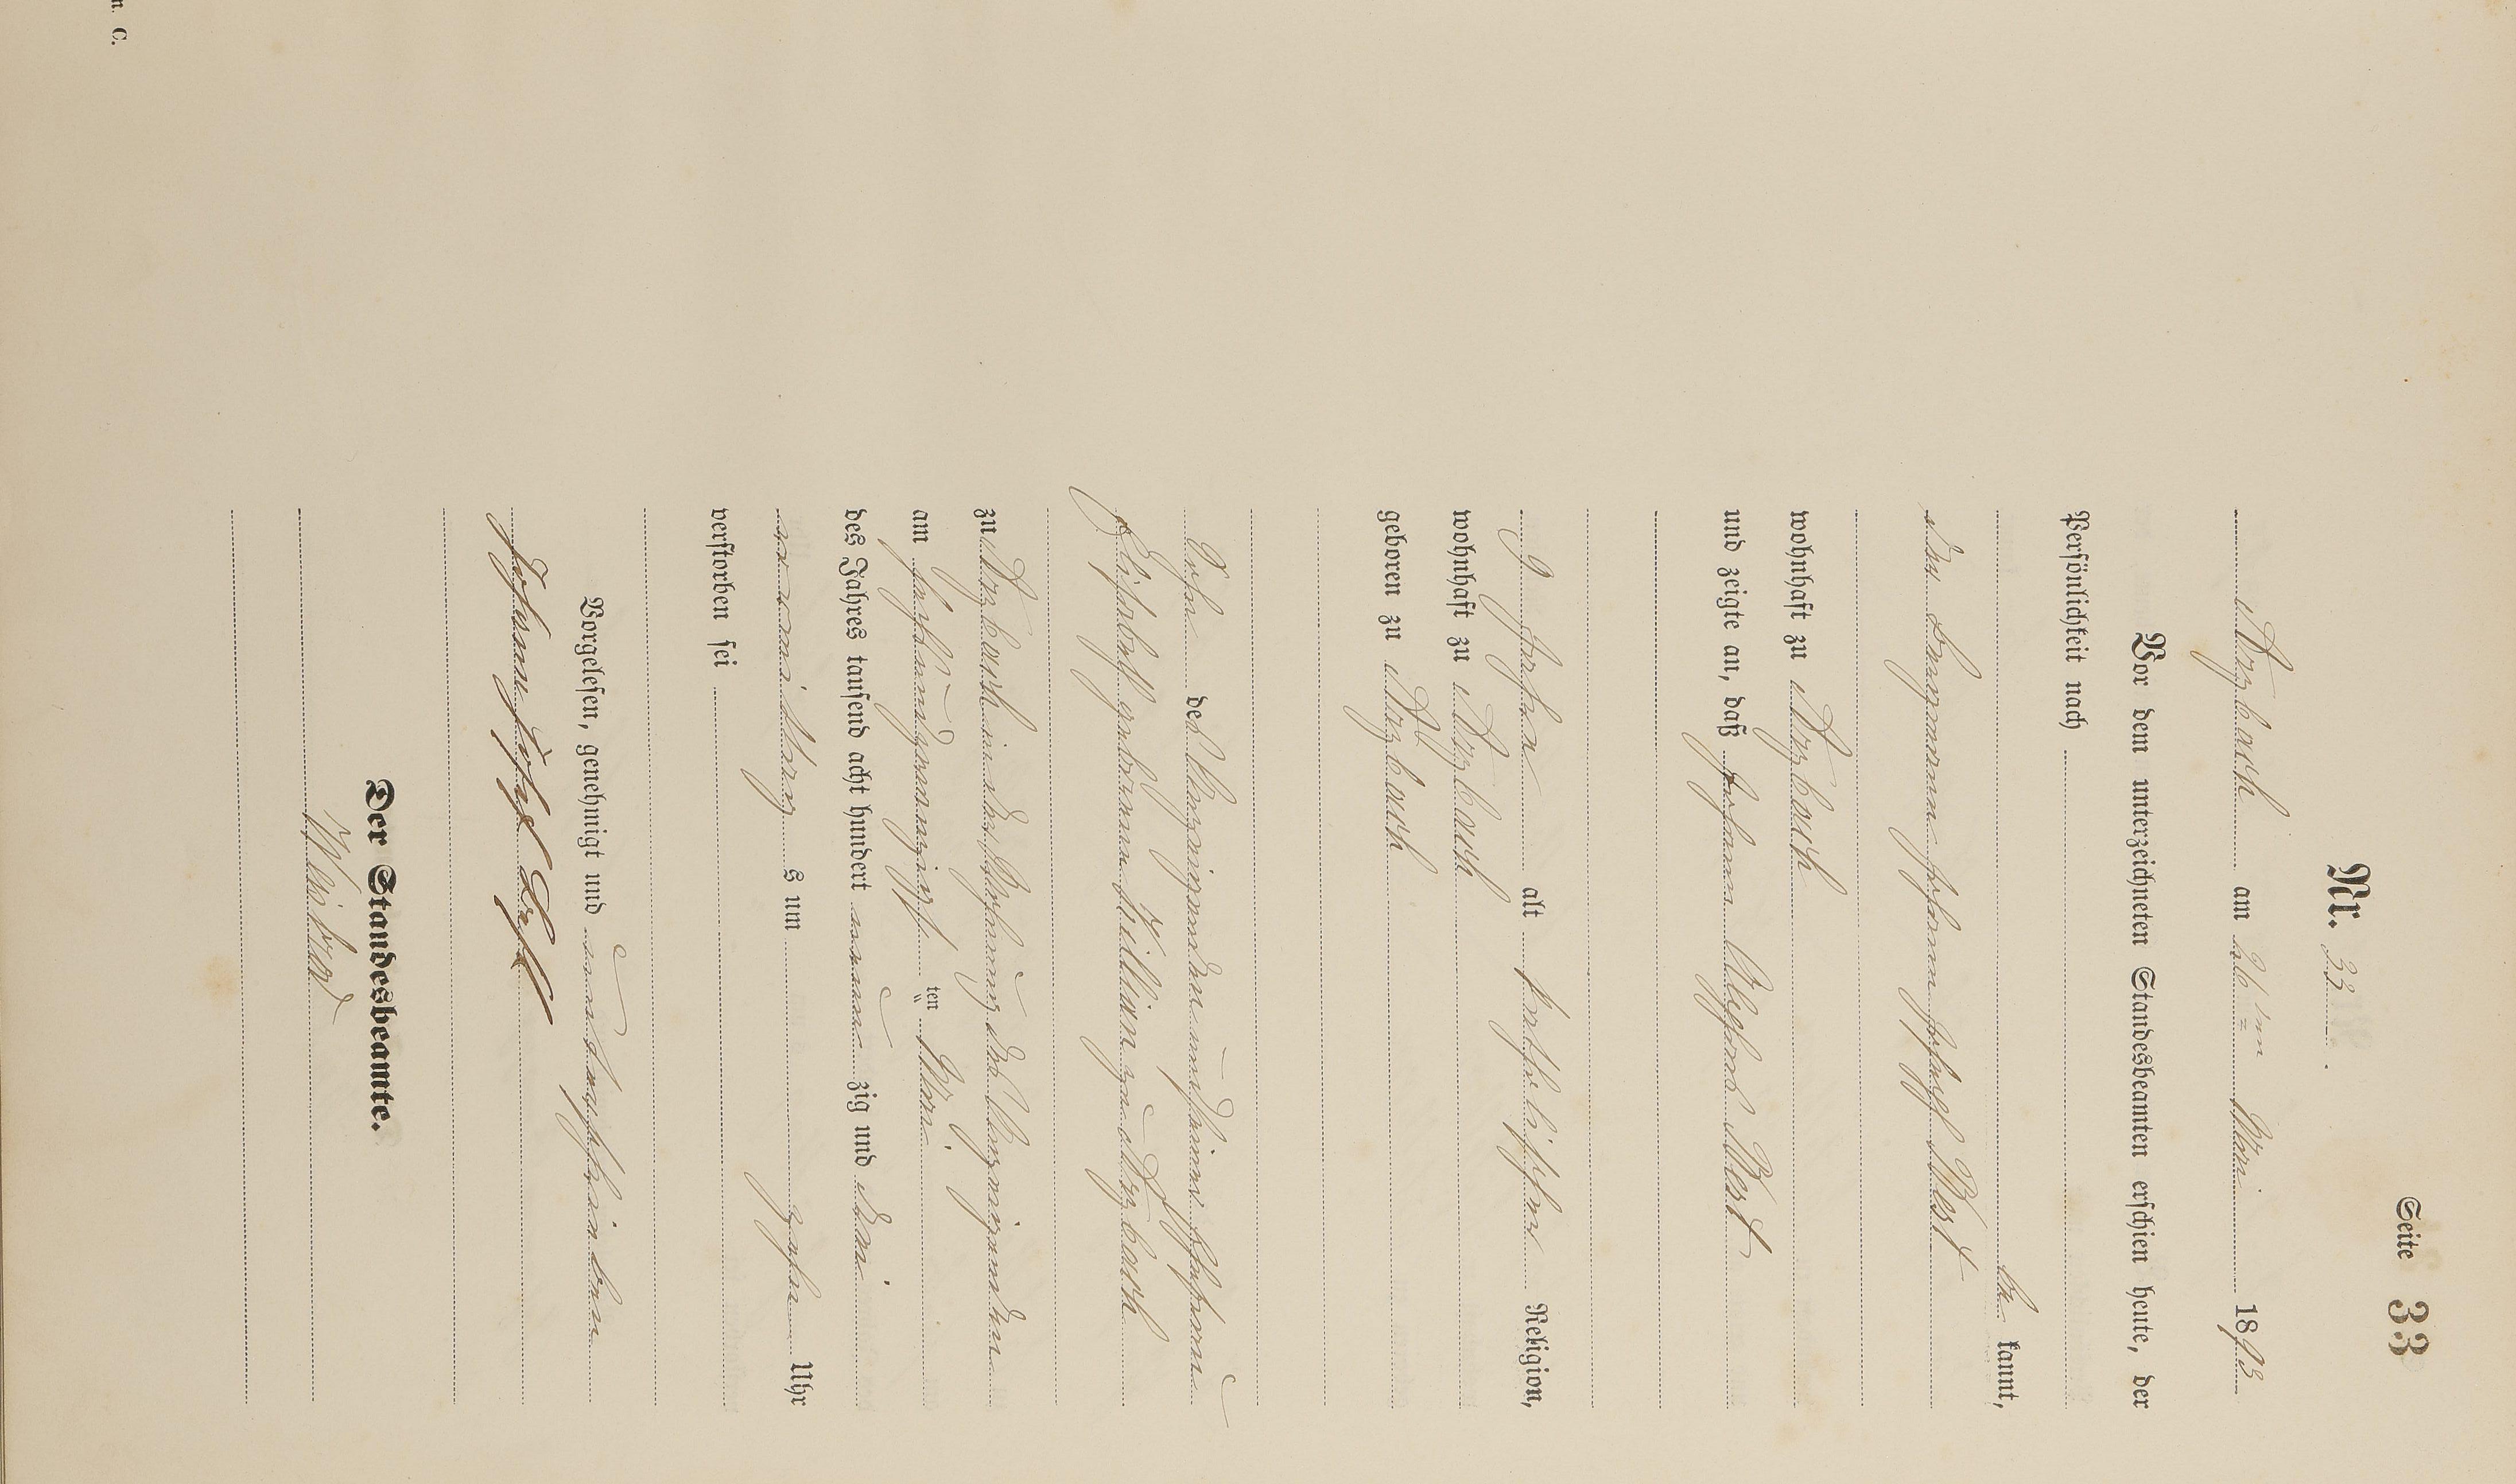 n. C.
Seite 33
Nr. 33
Arzbach am 26ten Mai 1893
Vor dem unterzeichneten Standesbeamten erschien heute, der
Persönlichkeit nach
be kannt,
der Bergmann Johann Joseph Best
wohnhaft zu Arzbach
und zeigte an, daß Johann Best
9 Jahre alt katholischer Religion,
wohnhaft zu Arzbach
geboren zu Arzbach
Sohn des Anzeigenden und seiner Ehefrau
Elisabeth geborenen Killian zu Arzbach
zu Arzbach in der Wohnung des Anzeigenden
am fünfundzwanzigsten Mai
des Jahres tausend acht hundert neun zig und drei
vormittags um zehn Uhr
verstorben sei
Vorgelesen, genehmigt und unterschrieben
Johann Josef Best
Der Standesbeamte.